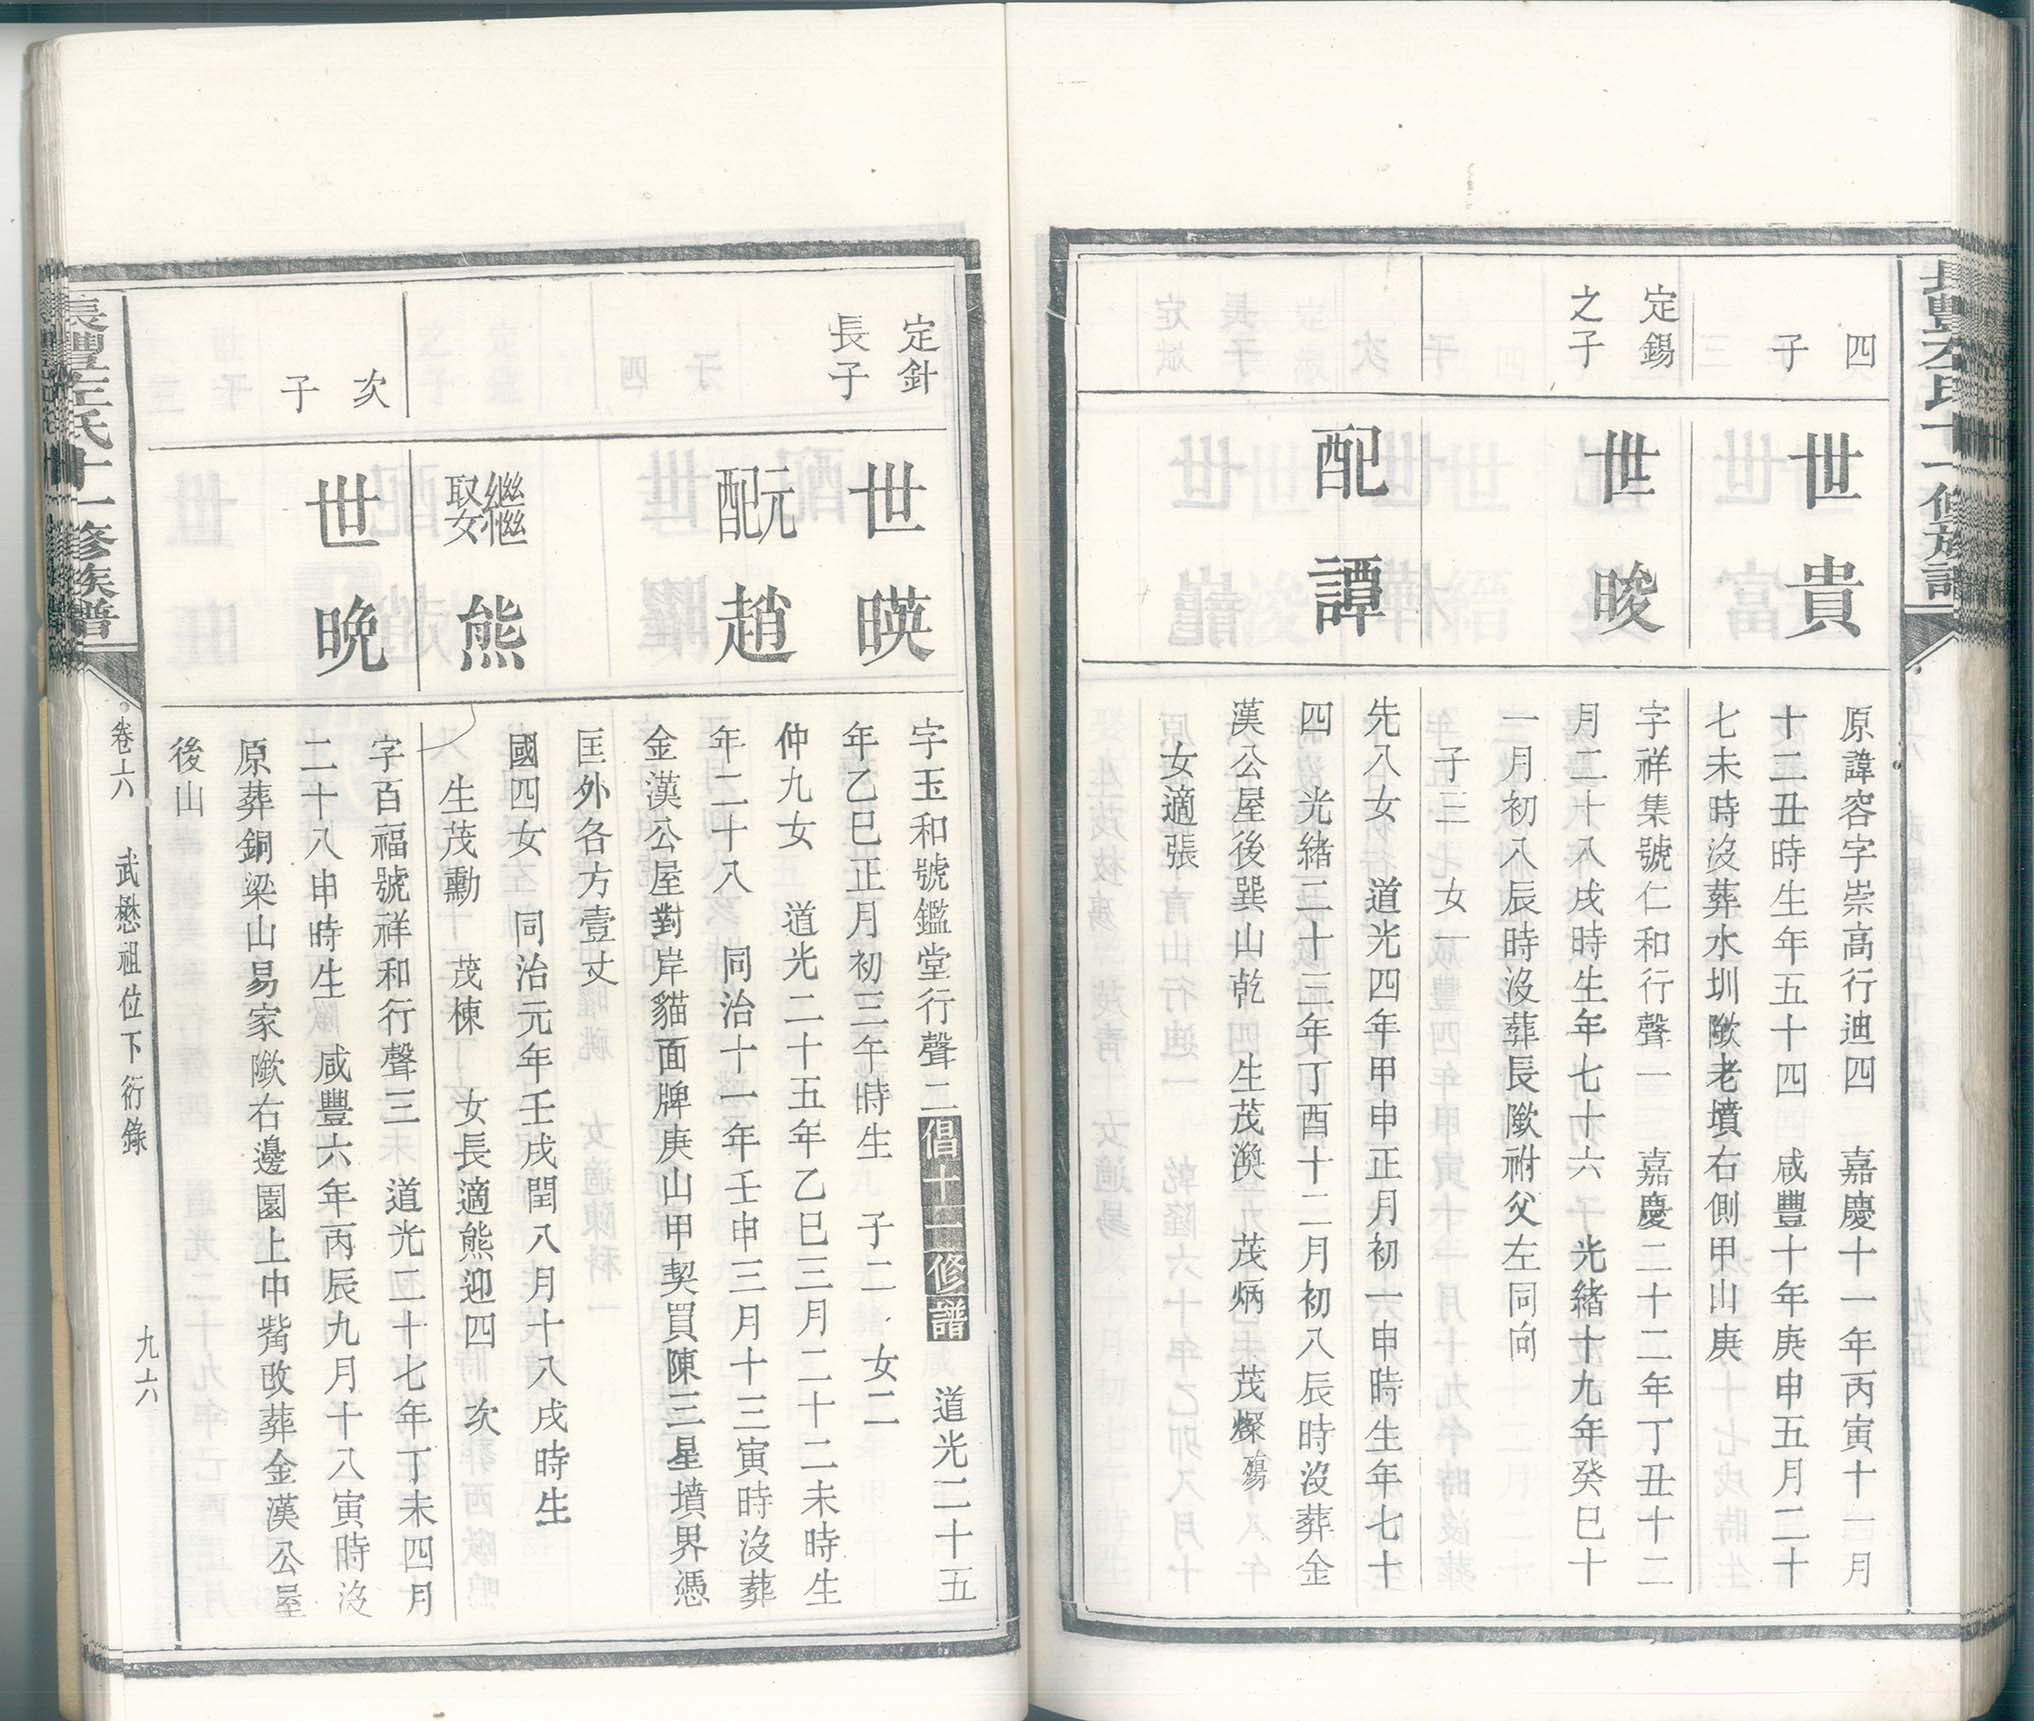 四
子
世貴
原諱容字崇高行迪四　嘉慶十一年丙寅十一月
十二丑時生年五十四　咸豐十年庚申五月二十
七未時沒葬水圳歘老墳右側甲山庚
定錫
之子
世畯
字祥集號仁和行聲一　嘉慶二十二年丁丑十二
月二十八戌時生年七十六　光緒十九年癸巳十
一月初八辰時沒葬長歘祔父左同向
子三　女一
配譚
先八女　道光四年甲申正月初一申時生年七十
四　光緒二十三年丁酉十二月初八辰時沒葬金
漢公屋後巽山乾　生茂渙　茂炳　茂燦殤
女適張
長豐左氏十一修族譜
定針
長子
世暎
字玉和號鑑堂行聲二倡十一修譜　道光二十五
年乙巳正月初三午時生　子二　女二
元配趙
仲九女　道光二十五年乙巳三月二十二未時生
年二十八　同治十一年壬申三月十三寅時沒葬
金漢公屋對岸貓面牌庚山甲契買陳三星墳界憑
匡外各方壹丈
繼娶熊
國四女　同治元年壬戌閏八月十八戌時生
生茂勳　茂棟　女長適熊迎四　次
次
子
世晚
字百福號祥和行聲三　道光二十七年丁未四月
二十八申時生　咸豐六年丙辰九月十八寅時沒
原葬銅梁山易家歘右邊園上中觜改葬金漢公屋
後山
長豐左氏十一修族譜
卷六　武懋祖位下衍錄　九六